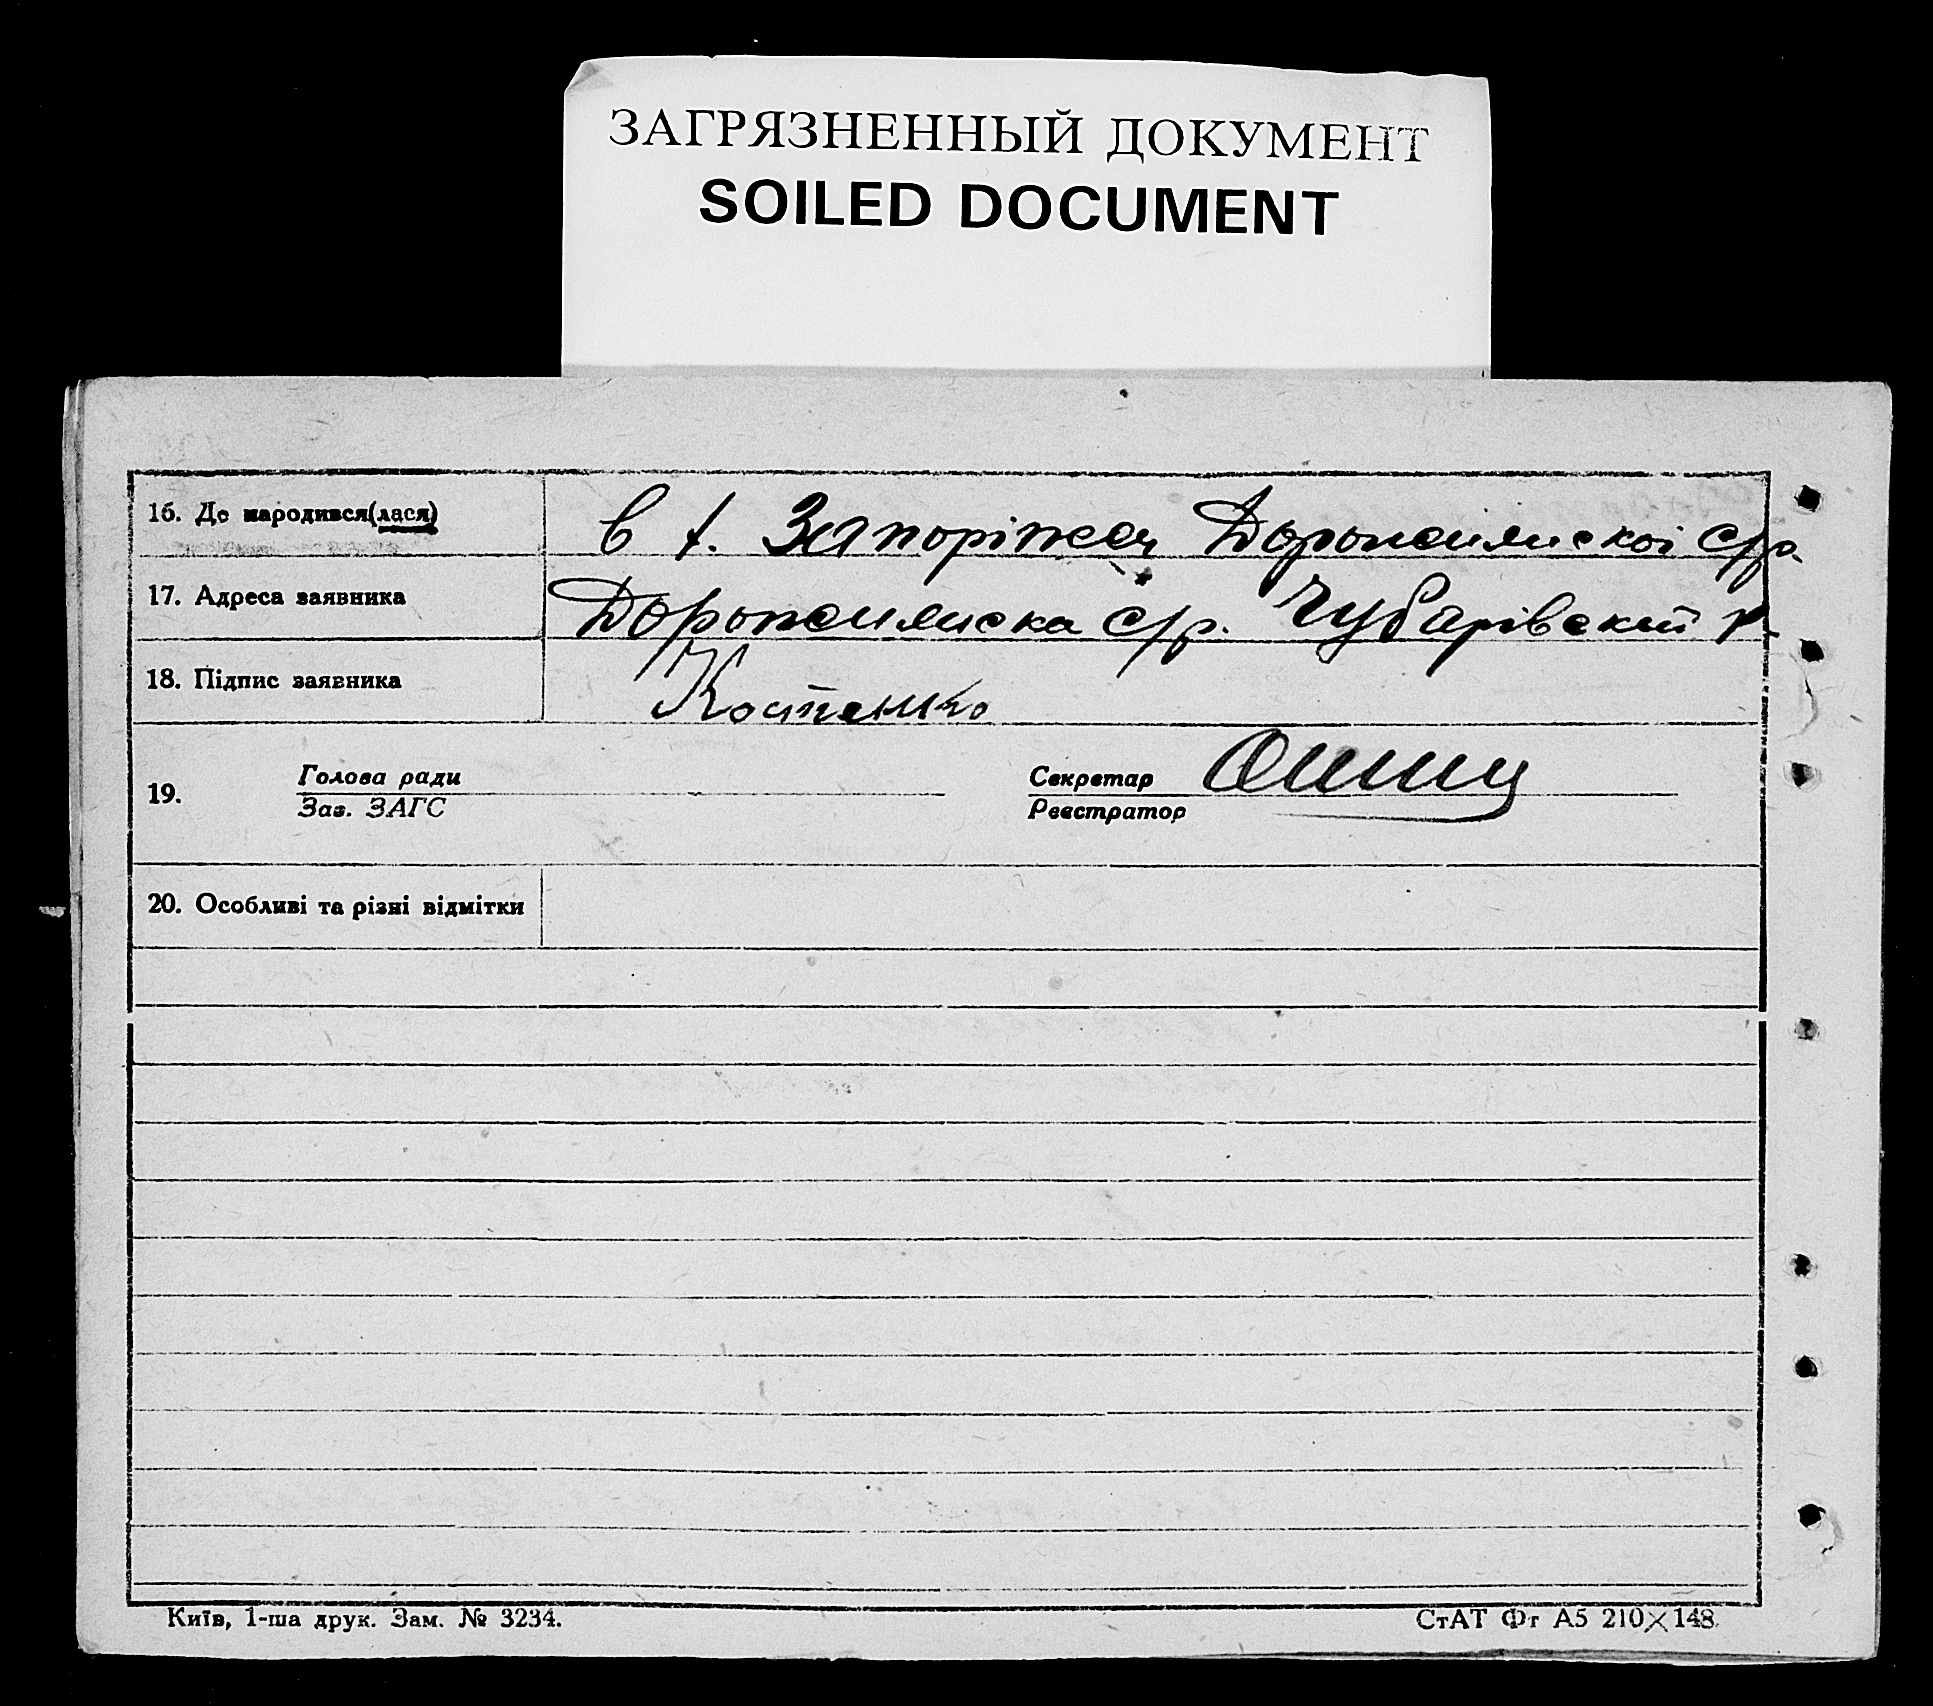 ЗАГРЯЗНЕННЫЙ ДОКУМЕНТ
SOILED DOCUMENT
16. Де народився(лася) в г. Запоріжжя Дорожнянскої с/р.
17. Адреса заявника Дорожнянска с/р. Чубарівский р.
18. Підпис заявника Костенко
19. Голова ради Секретар
Зав. ЗАГС Реєстратор
20. Особливі та різні відмітки
Київ, 1-ша друк. Зам. № 3234. СтАТ Фг А5 210×148.